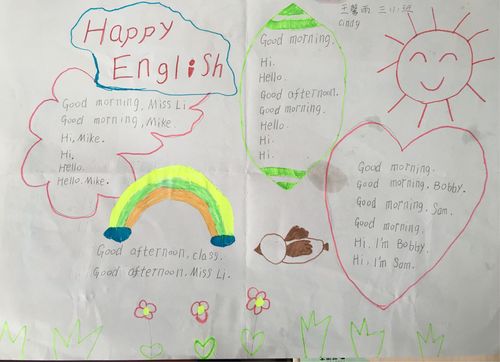 Happy
English
王馨雨 三小班
cindy
Good morning, Miss Li.
Good morning, Mike
Hi, Mike.
Hi.
Hello.
Hello. Mike.
Good morning.
Hi.
Hello.
Good afternoon.
Good morning.
Hello.
Hi.
Hi.
Good morning.
Good morning, Bobby.
Good morning, Sam.
Good morning.
Hi. I'm Bobby.
Hi. I'm Sam.
Good afternoon, class.
Good afternoon. Miss Li.